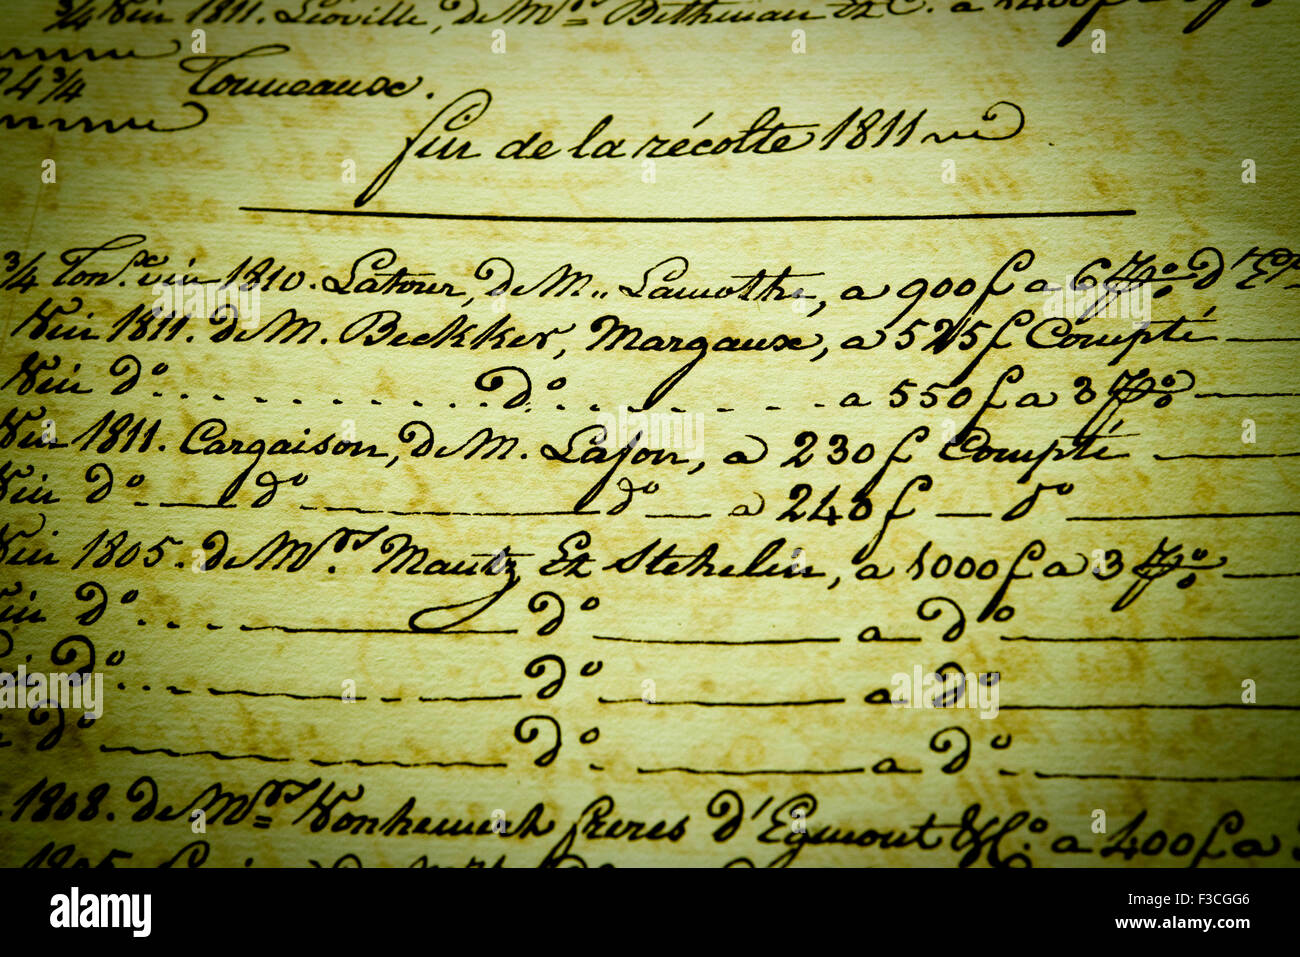 3/4 Vin 1811. Léoville, de M.rs Bethman Et C.° a
24 3/4 Tonneaux.
fin de la récolte 1811
3/4 Ton.x vin 1810. Latour, de M. Lamothe, a 900 f a 6 p% d'
Vin 1811. de M. Bekker, Margaux, a 525 f Compté
Vin d°. d°. a 550 f a 3 p%
Vin 1811. Cargaison, de M. Lafon, a 230 f Compté
Vin d°. d° d° a 240 f d°
Vin 1805. de M.rs Mautz Et Stehelin, a 1000 f a 3 p%
Vin d°. d° a d°
d°. d° a d°
d° d°. a d°.
1808. de M.rs frères d'Egmont & C.° a 400 f a
1805.
alamy
Image ID: F3CGG6
www.alamy.com